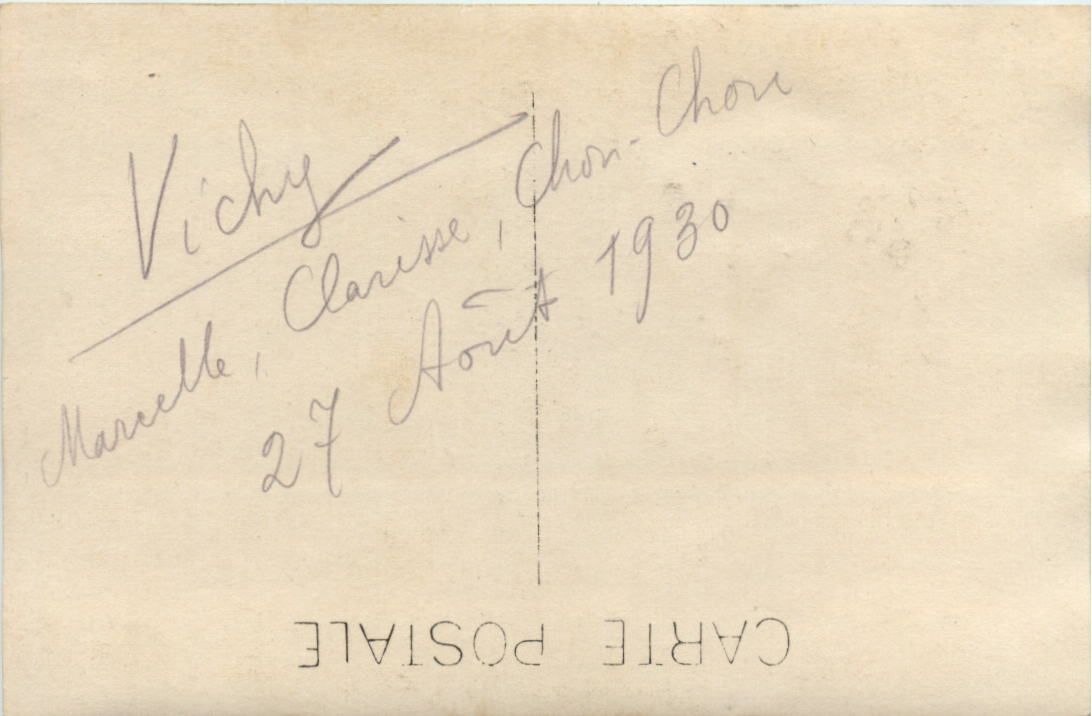 Vichy
Marcelle, Clarisse, Chou-Chou
27 Août 1930
CARTE POSTALE